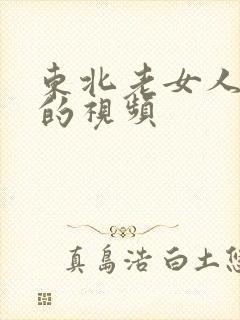 東北老女人
的視頻
真島浩 白土悠